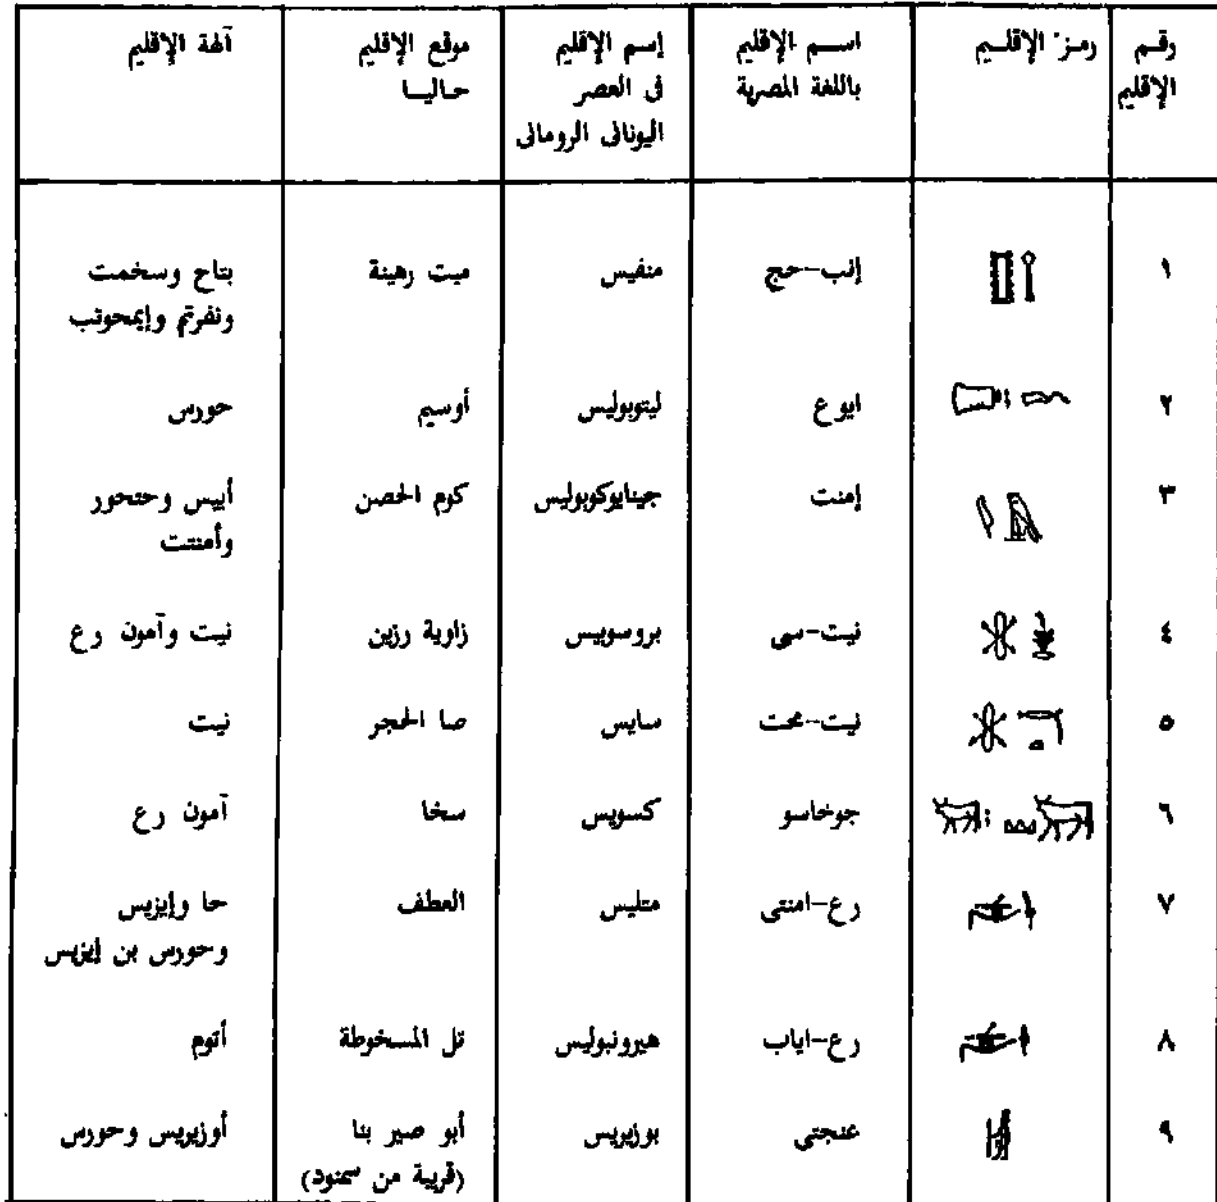 رقم الإقليم | رمز الإقليم | اسم الإقليم باللغة المصرية | إسم الإقليم فى العصر اليونانى الرومانى | موقع الإقليم حاليا | آلهة الإقليم
١ | إنب-حج | منفيس | ميت رهينة | بتاح وسخمت ونفرتم وإيمحوتب
٢ | ايوع | ليتوبوليس | أوسيم | حورس
٣ | إمنت | جينايوكوبوليس | كوم الحصن | أبيس وحتحور وأمنتت
٤ | نيت-سى | بروسوبيس | زاوية رزين | نيت وآمون رع
٥ | نيت-محت | سايس | صا الحجر | نيت
٦ | جوخاسو | كسويس | سخا | آمون رع
٧ | رع-امنتى | متليس | العطف | حا وإيزيس وحورس بن إيزيس
٨ | رع-اياب | هيرونبوليس | تل المسخوطة | أتوم
٩ | عنجتى | بوزيريس | أبو صير بنا (قريبة من سمنود) | أوزيريس وحورس